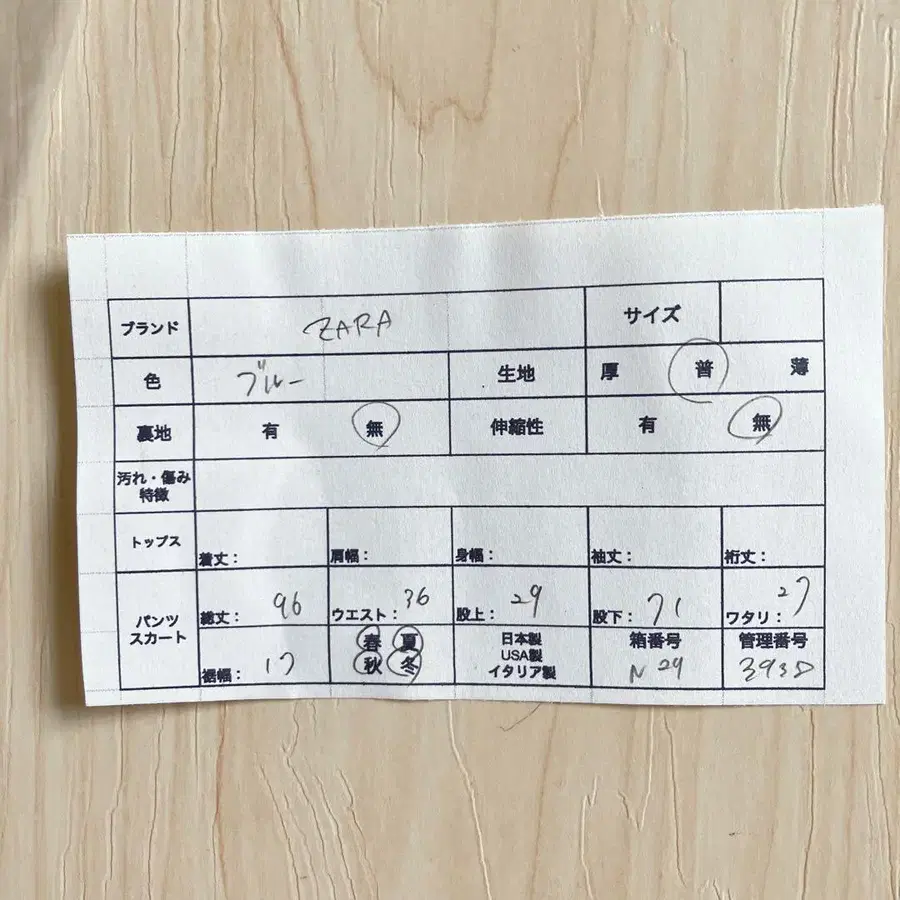 ブランド ZARA サイズ
色 ブルー 生地 厚 普 薄
裏地 有 無 伸縮性 有 無
汚れ・傷み
特徴
トップス 着丈： 肩幅： 身幅： 袖丈： 裄丈：
パンツ
スカート
総丈：96 ウエスト：36 股上：29 股下：71 ワタリ：27
裾幅：17
春 夏
秋 冬
日本製
USA製
イタリア製
箱番号
N 29
管理番号